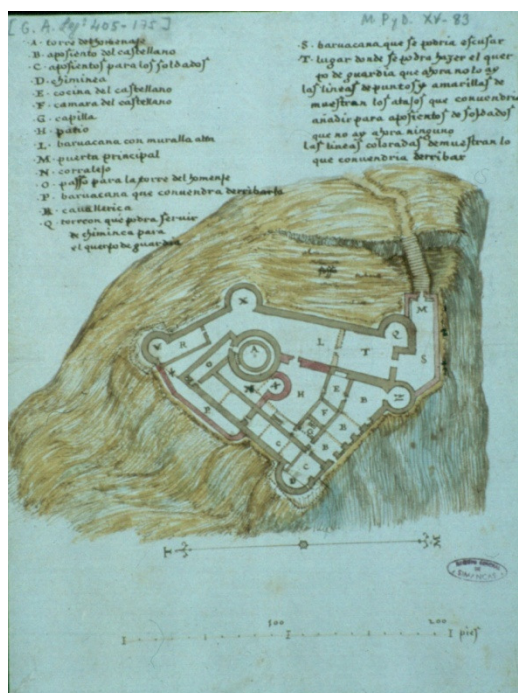 [G. A. leg: 405-175]
M. P. y D. XV-83
· A · torre del homenaje
· B · aposiento del castellano
· C · aposientos para los soldados
· D · chiminea
· E · cocina del castellano
· F · camara del castellano
· G · capilla
· H · patio
· L · baruacana con muralla alta
· M · puerta principal
· N · corralejo
· O · passo para la torre del homenje
· P · baruacana que conuendra derribarla
· R · cauallerica
· Q · torreon que podra seruir
de chiminea para
el querpo de guardia
· S · baruacana que se podria escusar
· T · lugar donde se podra hazer el quer
po de guardia que ahora no lo ay
las lineas de puntos y amarillas de
muestran los atajos que conuendria
añadir para aposientos de soldados
que no ay ahora ninguno
las lineas coloradas demuestran lo
que conuendria derribar
M
N
Q
L
T
A
R
S
H
E
B
N
O
F
P
B
C
B
C
T
M
SIMANCAS
100
200
pies